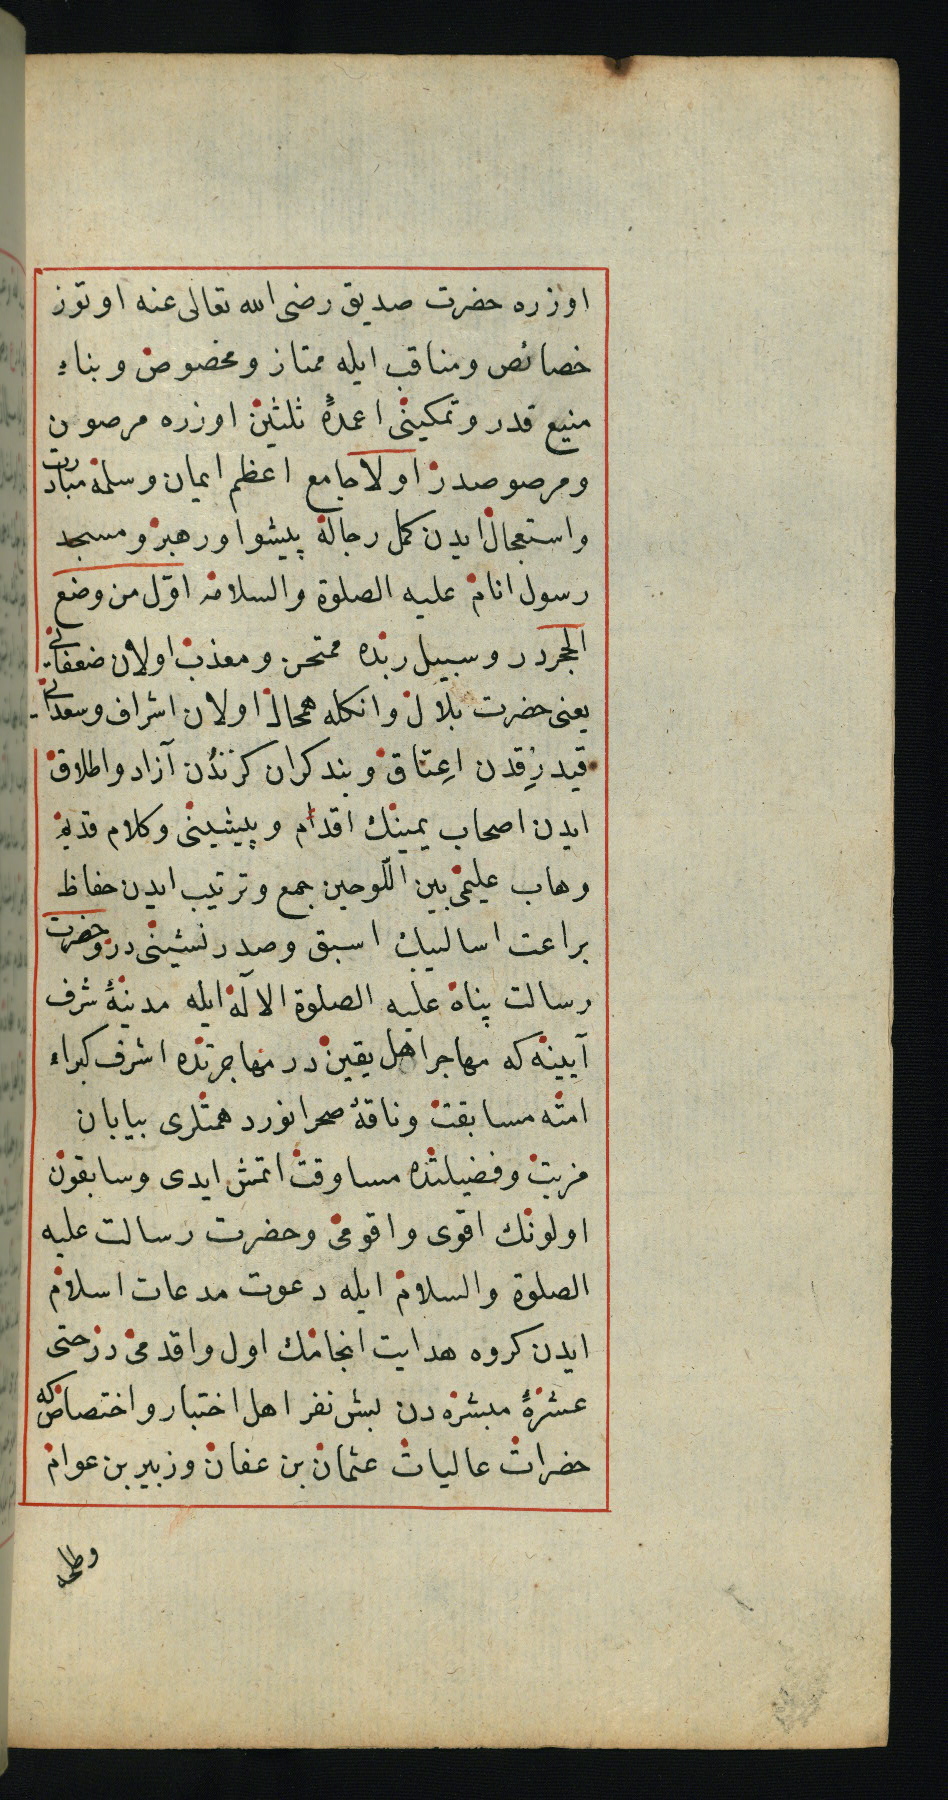 اوزره حضرت صديق رضى الله تعالى عنه اوتوز
خصائص ومناقب ايله ممتاز ومخصوص وبناء
منيع قدر وتمكينى اعمدهٔ ثلثين اوزره مرصون
ومرصوصدر اولا جامع اعظم ايمان وسلمه مبادرت
واستعجال ايدن كمل رجاله پيشوا ورهبر ومسجد
رسول انام عليه الصلوة والسلامه اوّل من وضع
الحجردر وسبيل ربده ممتحن ومعذب اولان ضعفائى
يعنى حضرت بلال وانكله همحال اولان اشراف وسعدائى
قيد رِقدن اعِتاق وبند كران كزنددن آزاد واطلاق
ايدن اصحاب يمينك اقدام وپيشينى وكلام قديم
وهاب عليمى بين اللّوحين جمع وترتيب ايدن حفاظ
براعت اساليبك اسبق وصدر نشينى در وحضرت
رسالت پناه عليه الصلوة الاله ايله مدينهٔ شرف
آيينه كه مهاجر اهل يقين در مهاجرتده اشرف كبراء
امته مسابقت وناقهٔ صحرا نورد همتلرى بيابان
مزيت وفضيلتده مساوقت اتمش ايدى وسابقون
اولونك اقوى واقومى وحضرت رسالت عليه
الصلوة والسلام ايله دعوت مدعات اسلام
ايدن كروه هدايت انجامك اول واقدمى در حتى
عشرهٔ مبشره دن بش نفر اهل اختبار واختصاص كه
حضرات عاليات عثمان بن عفان وزبير بن عوام
وطلحه